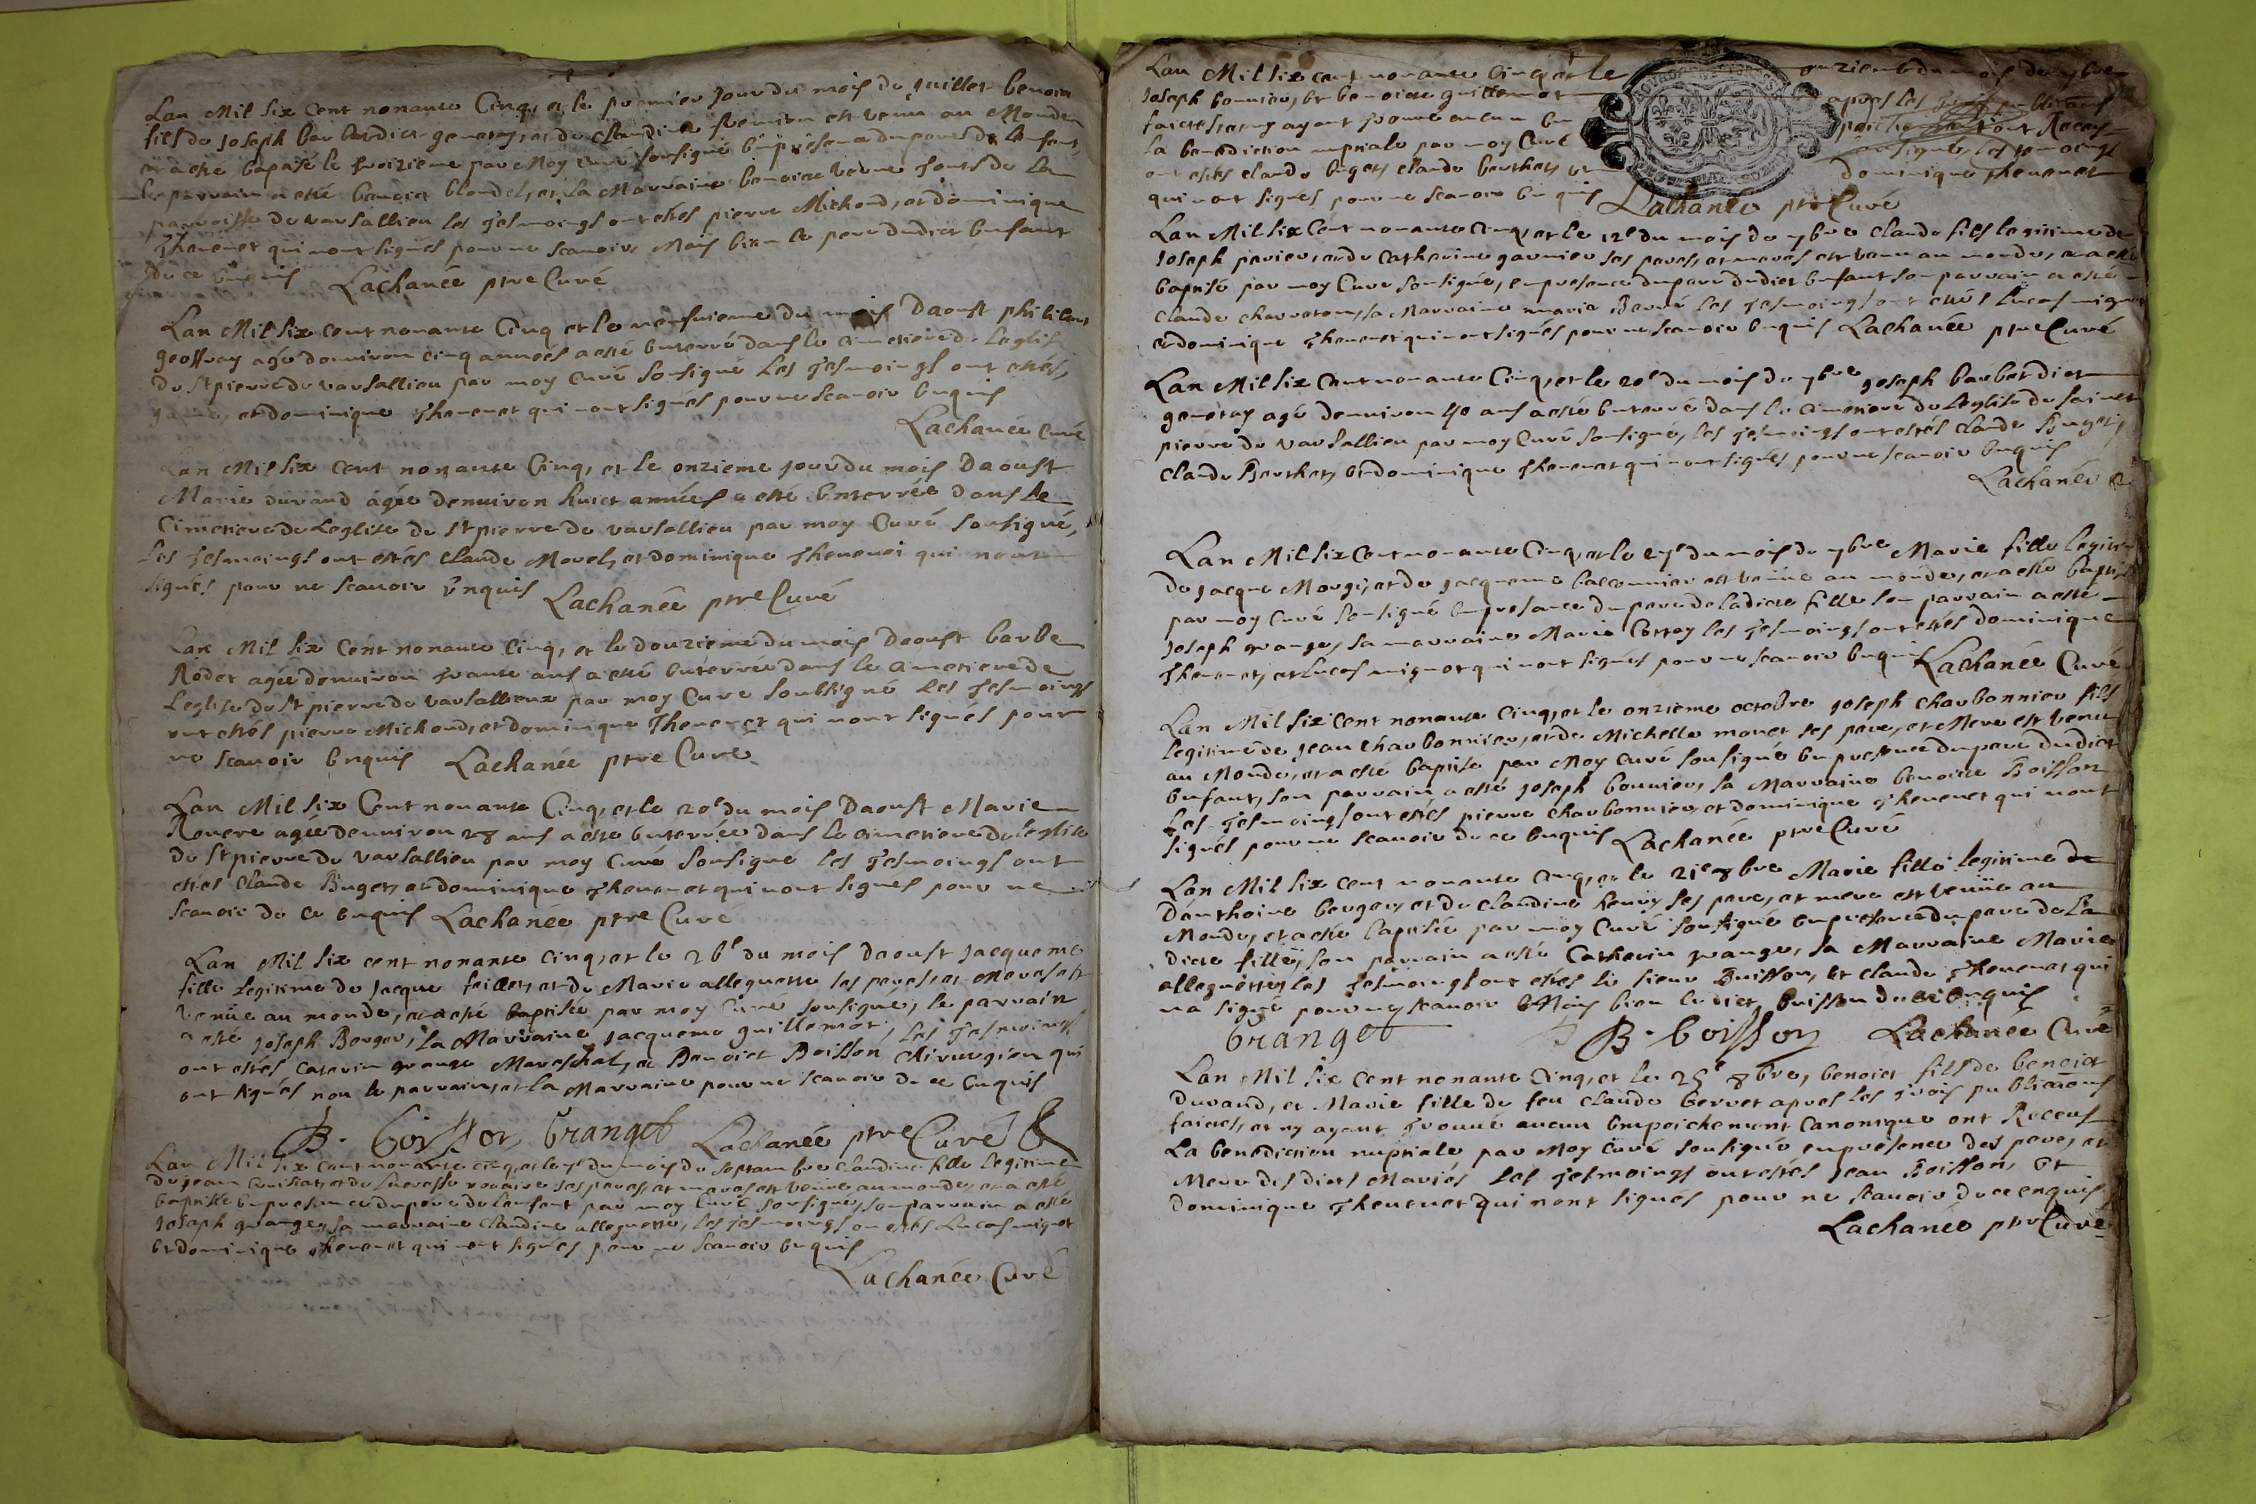 Lan Mil six Cent nonante Cinq, et le premier Jour du mois de Juillet benoit
fils de Joseph barbet dict generay, et de claudine est venu au Monde
et a esté baptisé le troizieme par Moy Curé sousigné en presence du pere de Lenfant,
le parrain a esté benoict blondel, et sa Marraine benoite touts de La
parroisse de vaysallieu les Tesmoings ont estés pierre Michoud, et dominique
Thevenet qui nont signés pour ne scavoir Mais bien le pere dudict Enfant
de ce Enquis Lachanée ptre Curé
Lan Mil six cent nonante Cinq et le neufvieme du mois Daoust philibert
geoffray agé denviron cinq années a esté Enterré dans le cimetiere de Leglise
de St pierre de vaysallieu par moy curé sousigné Les Tesmoings ont estés,
et dominique Thevenet qui nont signés pour ne scavoir Enquis
Lachanée Curé
Lan Mil six cent nonante Cinq, et le onzieme jour du mois Daoust
Marie durand agée denviron huict années a esté Enterrée dans le
Cimetiere de Leglise de St pierre de vaysallieu par moy Curé sousigné,
Les Tesmoings ont estés Claude Morel, et dominique Thevenet qui nont
signés pour ne scavoir Enquis Lachanée ptre Curé
Lan Mil six Cent nonante Cinq, et le douzieme du mois Daoust barbe
Rodet agée denviron trante ans a esté enterrée dans le Cimetiere de
Leglise de St pierre de vaysallieux par moy Cure soubsigné Les Tesmoings
ont estés pierre Michoud, et dominique Thevenet qui nont signés pour
ne scavoir Enquis Lachanée ptre Cure
Lan Mil six Cent nonante Cinq, et le 20e du mois Daoust Marie
Rouere agée denviron 28 ans a esté Enterrée dans le cimetiere de leglise
de St pierre de vaysallieu par moy Curé sousigne les Tesmoings ont
estés Claude Buget, et dominique Thevenet qui nont signes pour ne
scavoir de ce Enquis Lachanée ptre Curé
Lan Mil six cent nonante cinq, et le 26e du mois Daoust Jacqueme
fille Legitime de Jacque feillet, et de Marie alleguette ses peres, et Meres est
venue au monde, et a esté baptisée par moy Curé sousigne, le parrain
a esté Joseph Berger, la Marraine Jacqueme guillemot, Les Tesmoings
ont estés Caterin grange Mareschal, et Benoict Boisson Chirurgien qui
ont signés non le parrain, et la Marraine pour ne scavoir de ce Enquis
B. boisson Granget Lachanée ptre Curé
Lan Mil six cent nonante cinq, et le 7e du mois de Septambre Claudine fille Legitime
de Jean et de Lucresse ses peres, et meres est venue au monde, et a esté
baptisée en presence du pere de Lenfant par moy Curé sousigné, son parrain a esté
Joseph grange, sa marraine Claudine alleguette, les Tesmoings on estés Lucas mignot
et dominique Thevenet qui nont signés pour ne scavoir Enquis
Lachanée Curé
Lan Mil six cent nonante Cinq, et le onzieme du mois de 7bre
Joseph bonnier, et benoicte guillemot apres les publications
faictes, et ny ayant trouvé aucun ont Receu
la benediction nuptiale par moy Curé sousigné, les Tesmoings
ont estés claude buget, claude berthet, et dominique Thevenet
qui nont signés pour ne scavoir Enquis Lachanée ptre Curé
Lan Mil six Cent nonante Cinq, et le 12e du mois de 7bre Claude fils legitime de
Joseph perier, et de Catherine garnier ses peres, et meres est venu au monde, et a esté
baptisé par moy Cure sousigné, en presence du pere dudict Enfant son parrain a esté
Claude charreton, sa Marraine marie les Tesmoings ont estés Lucas mignot
et dominique Thevenet qui nont signés pour ne scavoir Enquis Lachanée ptre Curé
Lan Mil six Cent nonante Cinq, et le 20e du mois de 7bre Joseph barbet dict
generay agé denviron 40 ans a esté Enterré dans le cimetiere de Leglise de sainct
pierre de vaysallieu par moy Curé sousigné, les Tesmoings ont estés Claude Buget,
Claude Berthet, et dominique Thevenet qui nont signés pour ne scavoir Enquis
Lachanée
Lan Mil six Cent nonante Cinq, et le 27e du mois de 7bre Marie fille legitime
de Jacque Morgi, et de Jacqueme est venue au monde, et a esté baptisé
par moy Curé sousigné En presence du pere de ladicte fille son parrain a esté
Joseph grange, sa marraine Marie Cottey les Tesmoings ont estés dominique
Thevenet, et Lucas mignot qui nont signés pour ne scavoir Enquis Lachanée Curé
Lan Mil six Cent nonante Cinq, et le onzieme octobre Joseph charbonnier fils
legitime de Jean charbonnier, et de Michelle monet ses pere, et Mere est venu
au Monde, et a esté baptise par Moy Curé sousigné En presence du pere dudict
Enfant, son parrain a esté Joseph bonnier, sa Marraine benoicte Boisson
Les Tesmoings ont estés pierre charbonnier, et dominique Thevenet qui nont
signés pour ne scavoir de ce Enquis Lachanée ptre Curé
Lan Mil six cent nonante cinq, et le 21e 8bre Marie fille legitime de
Danthoine berger, et de Claudine henry ses pere, et mere est venue au
Monde, et a esté baptisée par moy Curé sousigné en presence du pere de La
dicte fille, son parrain a esté Catherin grange, sa Marraine Marie
alleguette, les Tesmoings ont estés le sieur Buisson, et Claude Thevenet qui
na signé pour ne scavoir Mais bien ledict buisson de ce Enquis
Granget B. boisson Lachanée Curé
Lan Mil six Cent nonante Cinq, et le 25e 8bre, benoict fils de benoict
Durand, et Marie fille de feu claude bervet apres les trois publications
faictes, et ny ayant trouvé aucun Empeichement Canonique ont Receus
La benediction nuptiale par Moy Curé sousigné en presence des peres, et
Mere desdicts Mariés Les Tesmoings ont estés Jean Boisson, Et
dominique Thevenet qui nont signés pour ne scavoir de ce enquis
Lachanée ptre Curé